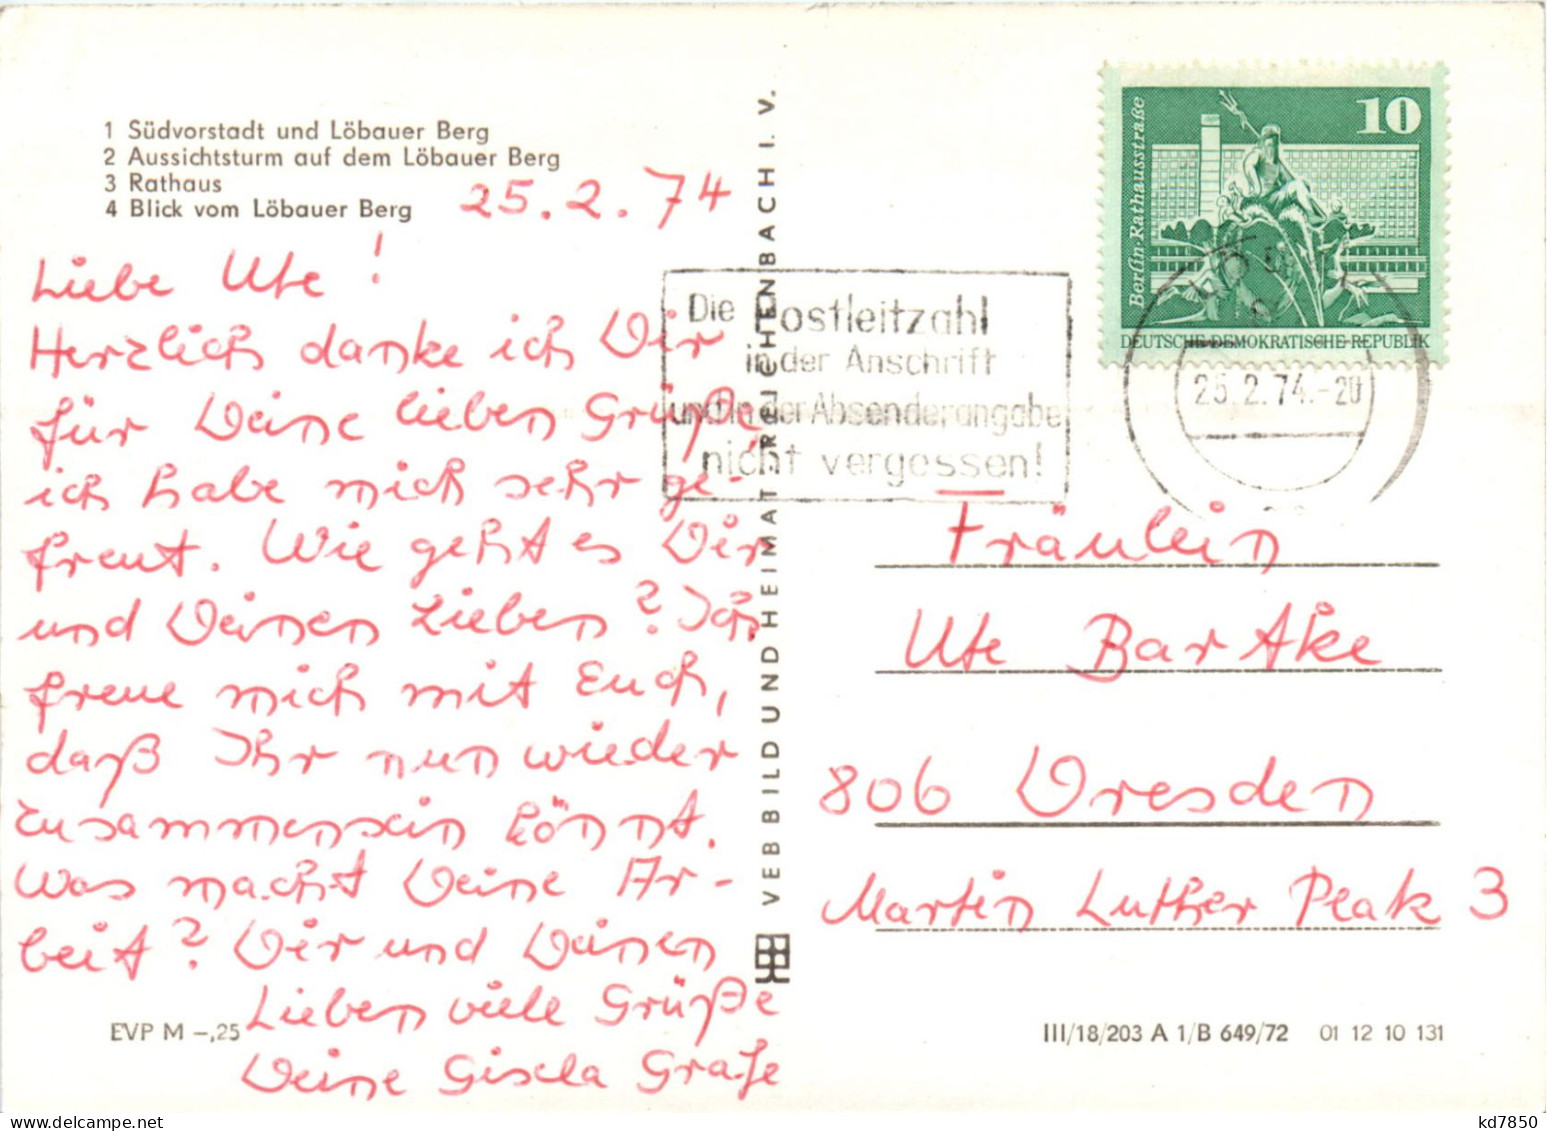 1 Südvorstadt und Löbauer Berg
2 Aussichtsturm auf dem Löbauer Berg
3 Rathaus
4 Blick vom Löbauer Berg
25.2.74
Liebe Ute!
Herzlich danke ich Dir
für Deine lieben Grüße,
ich habe mich sehr ge-
freut. Wie geht es Dir
und Deinen Lieben? Ich
freue mich mit Euch,
daß Ihr nun wieder
zusammensein könnt.
Was macht Deine Ar-
beit? Dir und Deinen
Lieben viele Grüße
Deine Gisela Grafe
EVP M –,25
VEB BILD UND HEIMAT REICHENBACH I. V.
Die Postleitzahl
in der Anschrift
und in der Absenderangabe
nicht vergessen!
10
Berlin·Rathausstraße
DEUTSCHE DEMOKRATISCHE REPUBLIK
25.2.74.-20
Fräulein
Ute Bartke
806 Dresden
Martin Luther Platz 3
III/18/203 A 1/B 649/72 01 12 10 131
kd7850